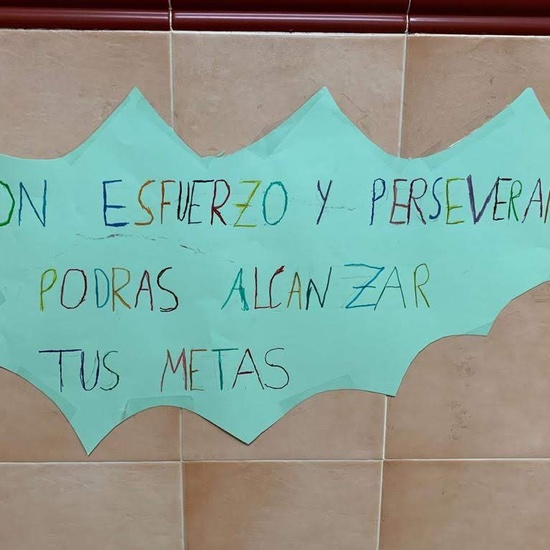 ON ESFUERZO Y PERSEVERAN
PODRAS ALCANZAR
TUS METAS